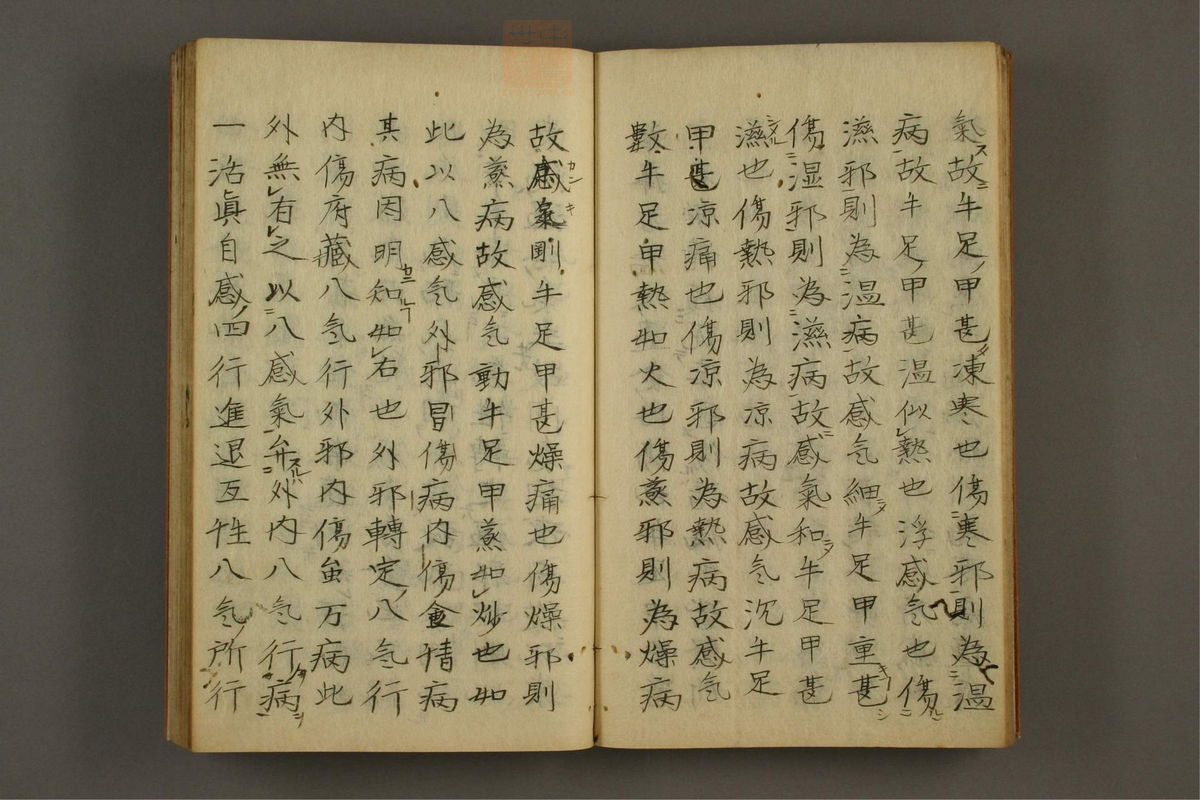 氣故牛足甲甚凍寒也傷寒邪則為温
病故牛足甲甚温似熱也浮感気也傷
濕邪則為温病故感気細牛足甲重甚
傷湿邪則為濕病故感氣和牛足甲甚
濕也傷熱邪則為凉病故感気沉牛足
甲甚凉痛也傷凉邪則為熱病故感気
數牛足甲熱如火也傷蒸邪則為燥病
故感氣剛牛足甲甚燥痛也傷燥邪則
為蒸病故感気動牛足甲蒸如炒也如
此以八感気外邪冒傷病内傷食情病
其病因明知如右也外邪轉定八気行
内傷府藏八気行外邪内傷虽万病此
外無有之以八感氣弁外内八気行病
一活眞自感四行進退互性八気所行